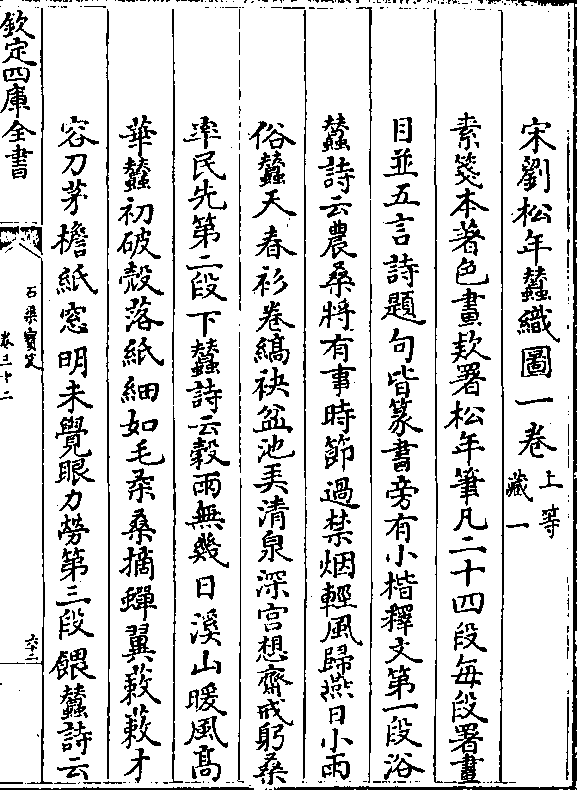 宋劉松年蠶織圖一卷 上等 藏一
素箋本著色畫欵署松年筆凡二十四段每段署畫
目並五言詩題句皆篆書旁有小楷釋文第一段浴
蠶詩云農桑將有事時節過禁烟輕風歸燕日小雨
俗蠶天春衫卷縞袂盆池弄清泉深宮想齋戒躬桑
率民先第二段下蠶詩云穀雨無幾日溪山暖風髙
華蠶初破殼落紙細如毛柔桑摘蟬翼蔌蔌才
容刀茅檐紙窓明未覺眼力勞第三段餵蠶詩云
欽定四庫全書
石渠寳笈
卷三十二